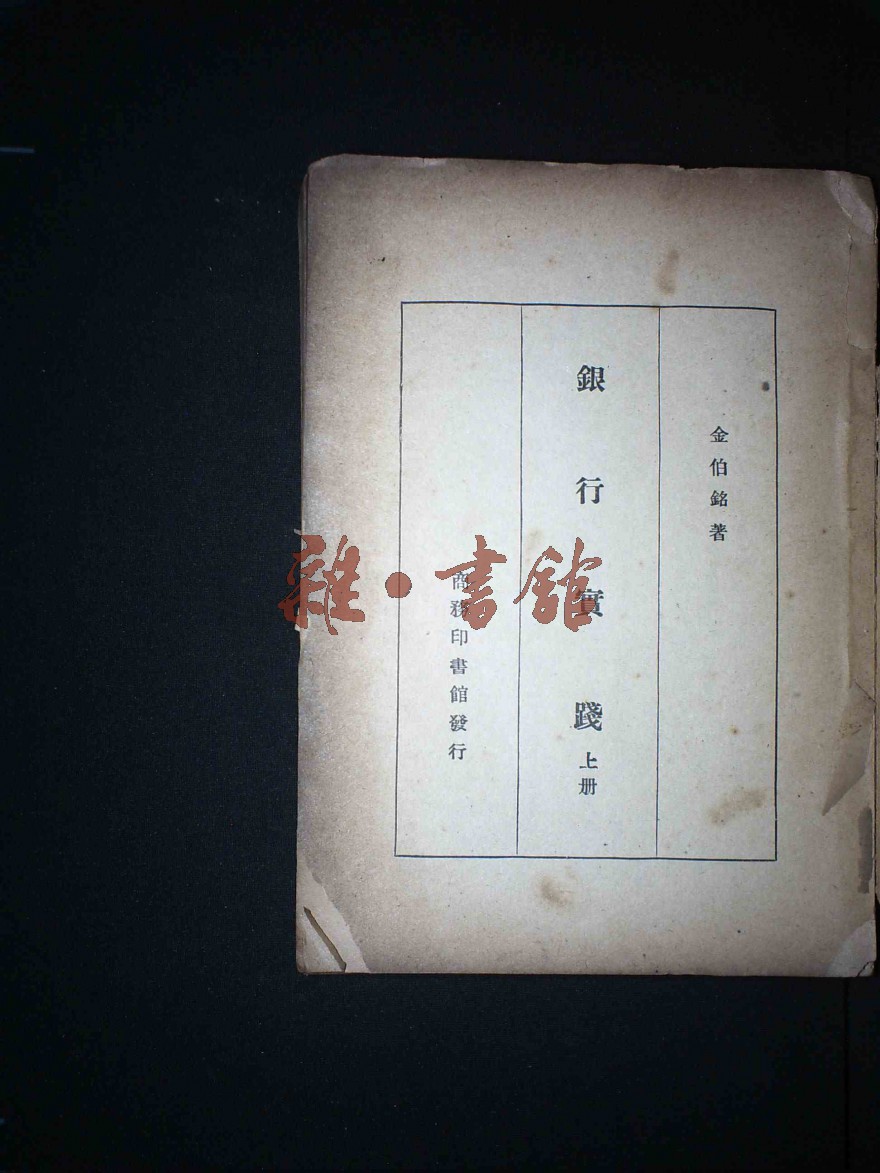 金伯銘著
銀行實踐 上册
商務印書館發行
雜·書館